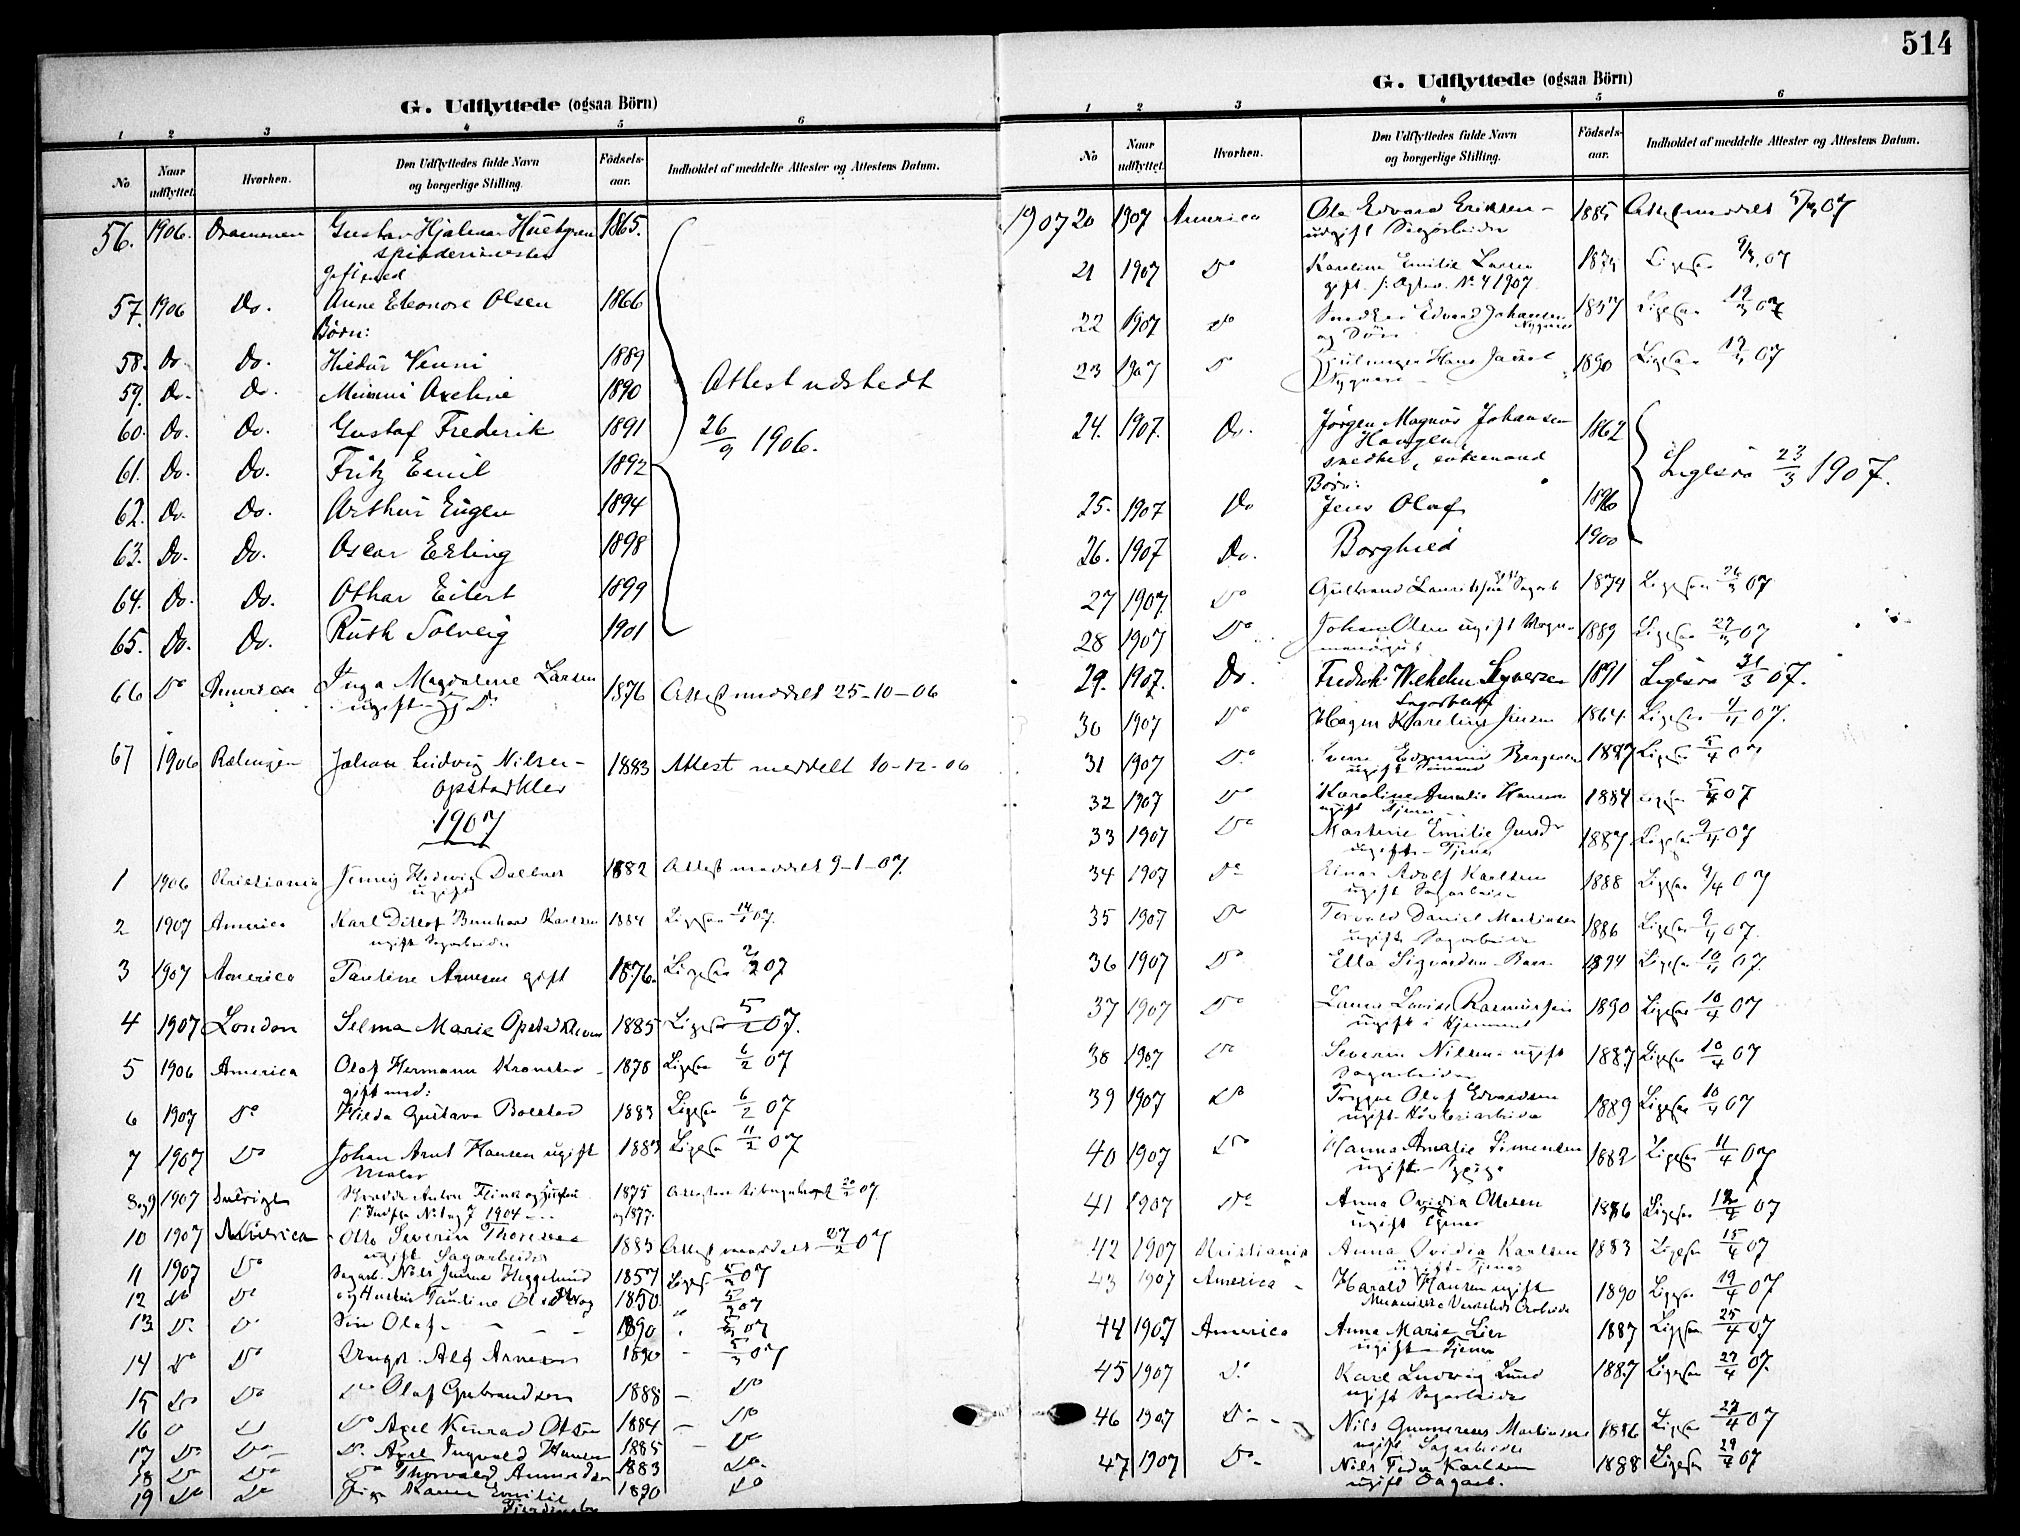 514
G. Udflyttede (ogsaa Börn)
1 2 3 4 5 6
No Naar udflyttet. Hvorhen. Den Udflyttedes fulde Navn og borgerlige Stilling. Födsels-aar. Indholdet af meddelte Attester og Attestens Datum.
56. 1906. Drammen Gustav Hjalmar 1865.
spinderimester
gift med
57. 1906 Do. Anne Eleonore Olsen 1866
Börn:
58. Do. Do. Hildur Venni 1889
59. Do. Do. Mimmi Axeline 1890 Attest udstedt
60. Do. Do. Gustaf Frederik 1891 26/9 1906.
61. Do. Do. Fritz Emil 1892
62. Do. Do. Arthur Eugen 1894
63. Do. Do. Oscar Erling 1898
64. Do. Do. Othar Eilert 1899
65. Do. Do. Ruth Solveig 1901
66 Do America Inga Magdalene Larsen 1876 Attest meddelt 25-10-06
ugift
67 1906 Rælingen Johan Ludvig Nilsen- 1883 Attest meddelt 10-12-06
Opstadklev
1907
1 1906 Kristiania Jenny Hedwig 1882 Attest meddelt 9-1-07.
ugift
2 1907 America Karl Ditlef Bernhard Karlsen 1884 Ligesaa 07.
ugift Sagarbeider
3 1907 America Pauline Arnesen gift 1876. Ligesaa 2/2 07
4 1907 London Selma Marie 1885 Ligesaa 5/2 07.
5 1906 America Olaf Hermann 1878 Ligesaa 6/2 07
gift med:
6 1907 Do Hilda Gustava Bolstad 1883 Ligesaa 6/2 07
7 1907 Do Johan Arnt Hansen ugift 1883 Ligesaa 11/2 07
Maler
8og9 1907 Sverige Anton 1875 07.
No 6og7 1904 og 1877.
10 1907 America Otto Severin 1883 Attest meddelt 27/2 07
ugift Sagarbeider
11 1907 Do Sagarb. Nils 1857 Ligesaa 5/3 07
12 do Do og Hustru Pauline 1850 5/3 07
13 Do Do Sön Olaf 1890 5/3 07
14 Do Do Ungk. Alf Arnesen 1890 5/3 07
15 Do Do Do Olaf Gubrandsen 1888 Do
16 Do Axel Konrad 1884 Do
17 Do Do Do Axel Ingvald Hansen 1885 Do
18 Do Do Do Thorvald 1883 Do
19 Do Do Karen Emilie 1890 Do
G. Udflyttede (ogsaa Börn)
1 2 3 4 5 6
No Naar udflyttet. Hvorhen. Den Udflyttedes fulde Navn og borgerlige Stilling. Födsels-aar. Indholdet af meddelte Attester og Attestens Datum.
1907 20 1907 America Ole Edvard Eriksen 1885 Attest meddelt 07
ugift Sagarbeider
21 1907 Do Karoline Emilie Larsen Ligesaa 07
gift 1907.
22 1907 do Snedker Edvard Johansen 1857 Ligesaa 07
og Sön
23 1907 Do Hans 1890 Ligesaa 07
24. 1907. Do. Jörgen Magnus Johansen 1862
Haugen,
snedker, enkemand Ligesaa 23/3 1907.
Börn:
25. 1907 Do Jens Olaf 1896
26. 1907 Do. Borghild 1900
27 1907. Do Gulbrand 1874 Ligesaa 26/3 07
28 1907 Do Johan Olsen ugift 1889 Ligesaa 27/3 07
29. 1907. Do. Fredrik Wilhelm Syversen 1891 Ligesaa 31/3 07.
30 1907 Do Hagen Karelius Jensen 1864. Ligesaa 07.
31 1907 Do. 1887 Ligesaa 5/4 07
ugift
32 1907 Do Karoline Amalie Hansen 1884 Ligesaa 5/4 07
ugift Tjener
33 1907 Do Emilie 1887 Ligesaa 9/4 07
ugift Tjener
34 1907 Do Einar Adolf Karlsen 1888 Ligesaa 9/4 07
ugift Sagarbeider
35 1907 Do Torvald Daniel Martinsen 1886 Ligesaa 9/4 07.
ugift Sagarbeider
36 1907 Do Ella 1894 Ligesaa 10/4 07.
37 1907 Do Laura Lovise Rasmussen 1890 Ligesaa 10/4 07
ugift i Hjemmet
38 1907 Do Severin Nilsen ugift 1887 Ligesaa 10/4 07
Sagarbeider
39 1907 Do Trygve Olaf Edvardsen 1889 Ligesaa 10/4 07
ugift Hövleriarbeider
40 1907 Do Hanna Amalie Simensen 1882 Ligesaa 11/4 07
ugift
41 1907 Do Anna Ovidia Olsen 1886 Ligesaa 07
ugift Tjener
42 1907 Kristiania Anna Ovidia Karlsen 1883 Ligesaa 15/4 07
ugift Tjener
43 1907 America Harald Hansen ugift 1890 Ligesaa 19/4 07
44 1907 America Anna Marie Lier 1887 Ligesaa 25/4 07
ugift Tjener
45 1907 Do Karl Ludvig Lund 1887 Ligesaa 27/4 07.
ugift Sagarbeider
46 1907 Do Nils Gunnerius Martinsen 1886 Ligesaa 27/4 07
ugift Sagarbeider
47 1907 Do Nils Peder Karlsen 1888 Ligesaa 29/4 07
ugift Sagarb.